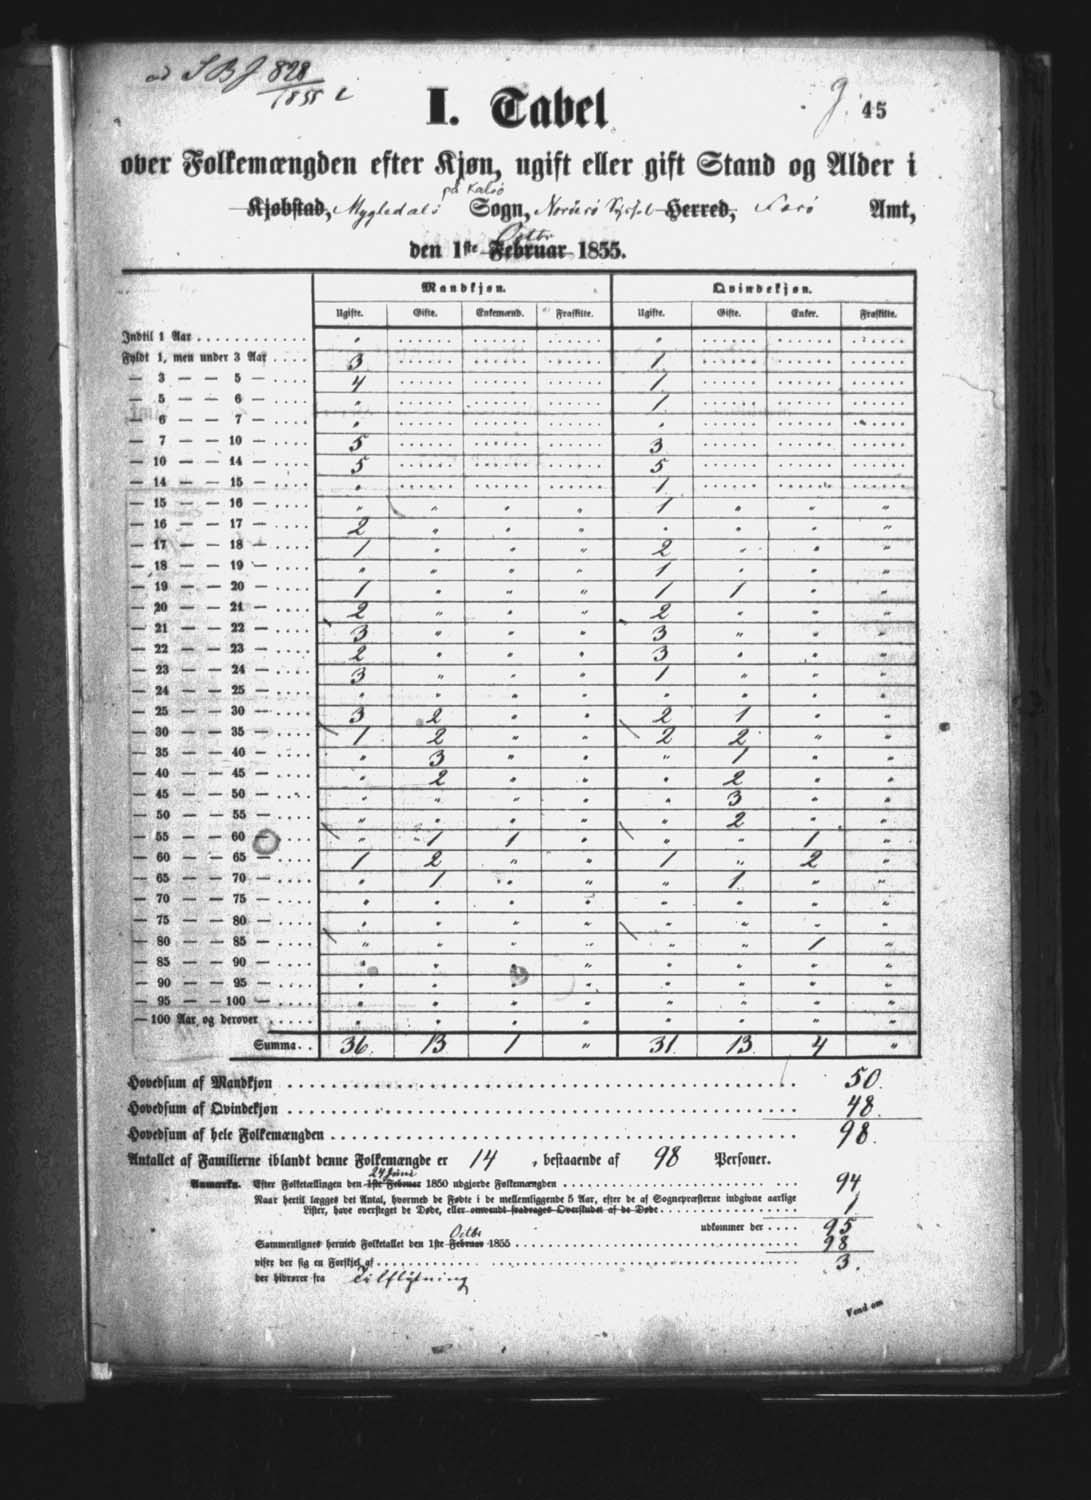 ad S B J 828
1855 2
I. Tabel
g. 45
over Folkemængden efter Kjøn, ugift eller gift Stand og Alder i
på Kalsö
Kjøbstad, Mygledahl Sogn, Norderö Syssel Herred, Färö Amt,
Octbr
den 1ste Februar 1855.
Mandkjøn. Qvindekjøn.
Ugifte. Gifte. Enkemænd. Fraskilte. Ugifte. Gifte. Enker. Fraskilte.
Indtil 1 Aar . . . . . . . . . . " "
Fyldt 1, men under 3 Aar . . . . 3 1
— 3 — — 5 — . . . . 4 1
— 5 — — 6 — . . . . " 1
— 6 — — 7 — . . . . " "
— 7 — — 10 — . . . . 5 3
— 10 — — 14 — . . . . 5 5
— 14 — — 15 — . . . . " 1
— 15 — — 16 — . . . . " " " " 1 " " "
— 16 — — 17 — . . . . 2 " " " " " " "
— 17 — — 18 — . . . . 1 " " " 2 " " "
— 18 — — 19 — . . . . " " " " 1 " " "
— 19 — — 20 — . . . . 1 " " " 1 1 " "
— 20 — — 21 — . . . . 2 " " " 2 " " "
— 21 — — 22 — . . . . 3 " " " 3 " " "
— 22 — — 23 — . . . . 2 " " " 3 " " "
— 23 — — 24 — . . . . 3 " " " 1 " " "
— 24 — — 25 — . . . . " " " " " " " "
— 25 — — 30 — . . . . 3 2 " " 2 1 " "
— 30 — — 35 — . . . . 1 2 " " 2 2 " "
— 35 — — 40 — . . . . " 3 " " " 1 " "
— 40 — — 45 — . . . . " 2 " " " 2 " "
— 45 — — 50 — . . . . " " " " " 3 " "
— 50 — — 55 — . . . . " " " " " 2 " "
— 55 — — 60 — . . . . " 1 1 " " " 1 "
— 60 — — 65 — . . . . 1 2 " " 1 " 2 "
— 65 — — 70 — . . . . " 1 " " " 1 " "
— 70 — — 75 — . . . . " " " " " " " "
— 75 — — 80 — . . . . " " " " " " " "
— 80 — — 85 — . . . . " " " " " " 1 "
— 85 — — 90 — . . . . " " " " " " " "
— 90 — — 95 — . . . . " " " " " " " "
— 95 — — 100 — . . . . " " " " " " " "
— 100 Aar og derover . . . . . " " " " " " " "
Summa . . 36. 13 1 " 31. 13. 4 "
Hovedsum af Mandkjøn . . . . 50.
Hovedsum af Qvindekjøn . . . . 48.
Hovedsum af hele Folkemængden . . . . 98.
Antallet af Familierne iblandt denne Folkemængde er 14, bestaaende af 98 Personer.
24 Juni
Anmærkn. Efter Folketællingen den 1ste Februar 1850 udgjorde Folkemængden . . . . 94
Naar hertil lægges det Antal, hvormed de Fødte i de mellemliggende 5 Aar, efter de af Sognepræsterne indgivne aarlige
Lister, have oversteget de Døde, eller omvendt fradrages Overskudet af de Døde . . . . 1
udkommer der . . . . 95
Octbr
Sammenlignes hermed Folketallet den 1ste Februar 1855 . . . . 98
viser der sig en Forskjel af . . . . 3.
der hidrører fra Tilflytning
Vend om